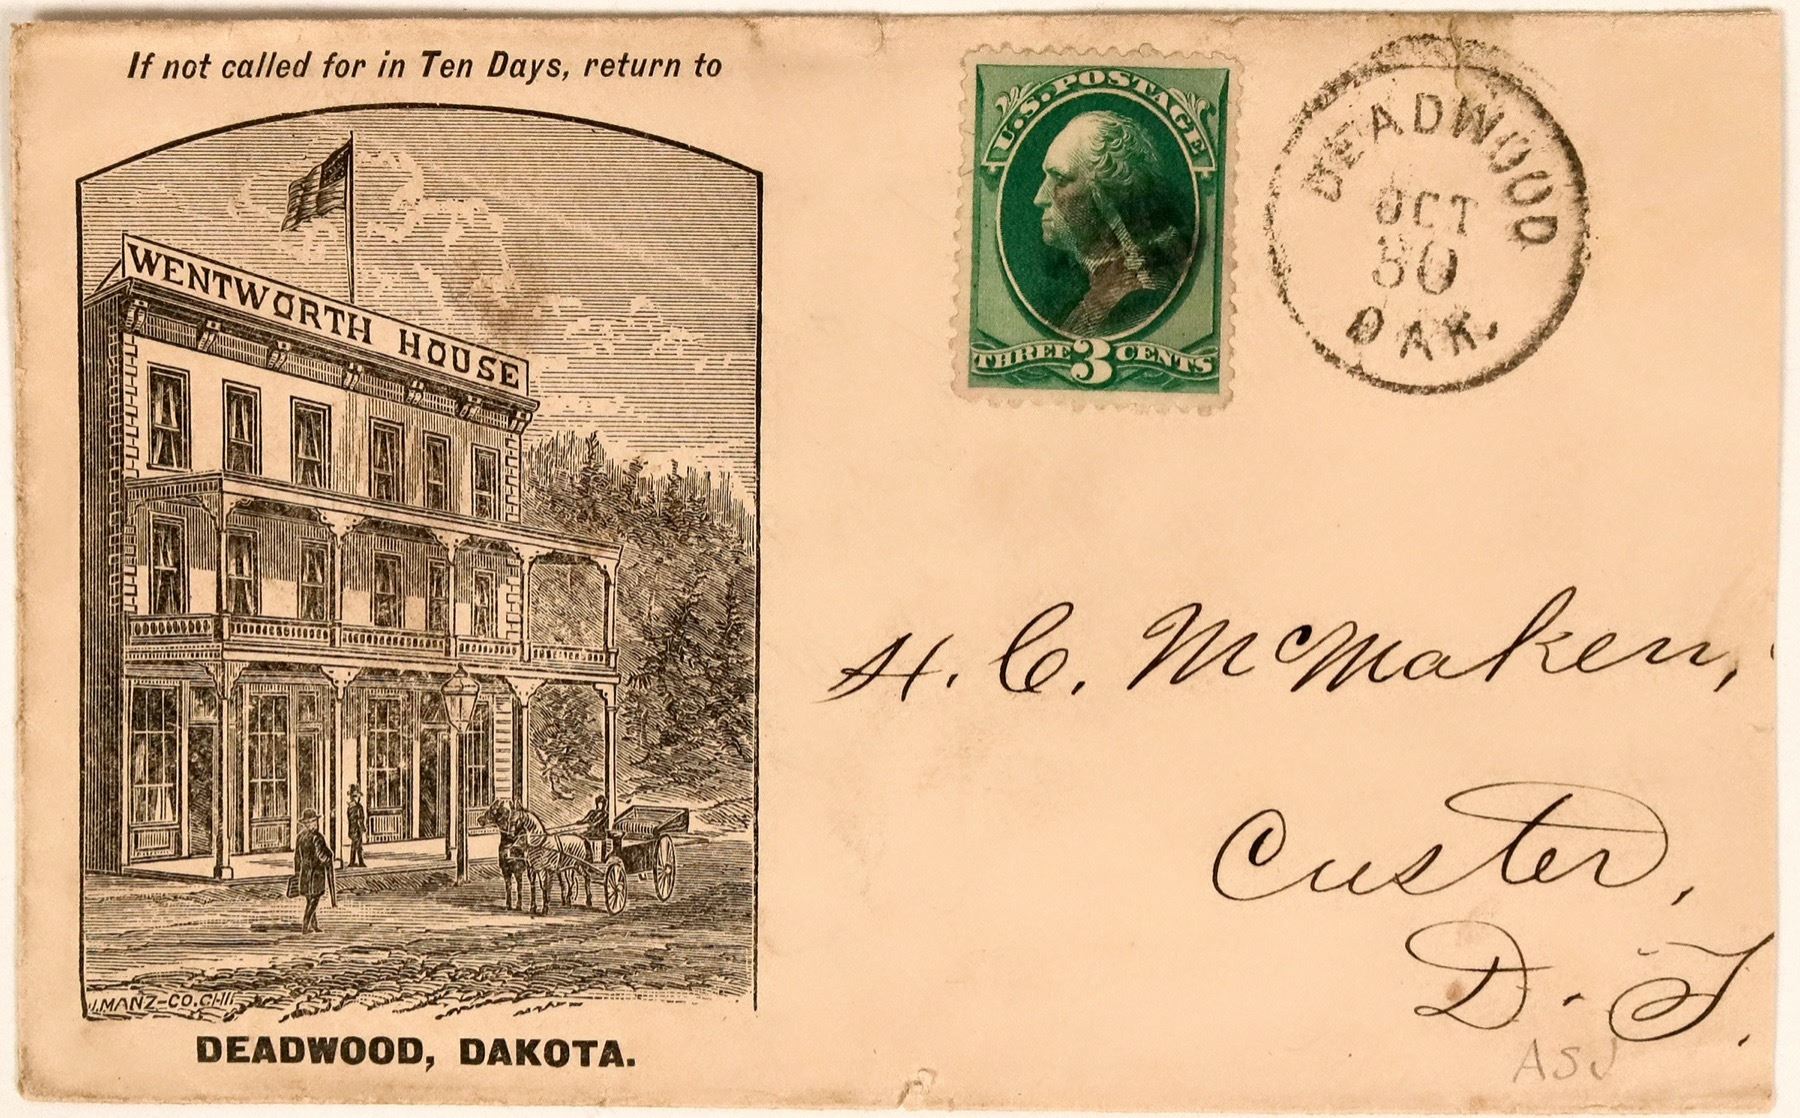 If not called for in Ten Days, return to
WENTWORTH HOUSE
J.MANZ-CO.CHI.
DEADWOOD, DAKOTA.
U.S. POSTAGE
THREE 3 CENTS
DEADWOOD
OCT
30
DAK.
H. C. McMaken,
Custer,
D. T.
ASJ